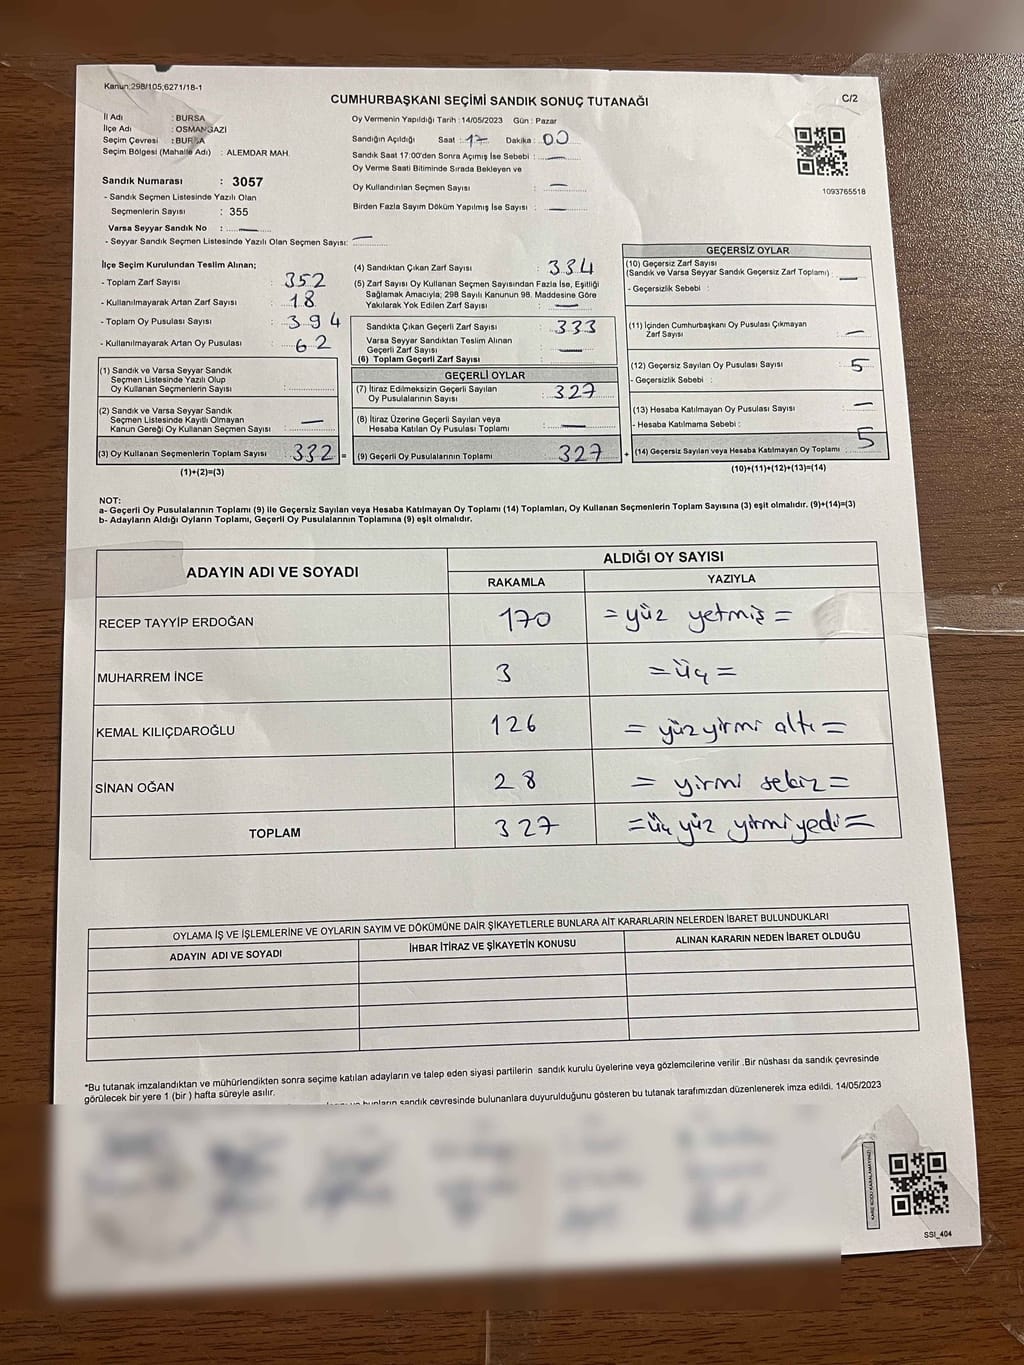 Kanun:298/105;6271/18-1
C/2
CUMHURBAŞKANI SEÇİMİ SANDIK SONUÇ TUTANAĞI
İl Adı : BURSA
İlçe Adı : OSMANGAZİ
Seçim Çevresi : BURSA
Seçim Bölgesi (Mahalle Adı) : ALEMDAR MAH.
Sandık Numarası : 3057
- Sandık Seçmen Listesinde Yazılı Olan
Seçmenlerin Sayısı : 355
Varsa Seyyar Sandık No : —
- Seyyar Sandık Seçmen Listesinde Yazılı Olan Seçmen Sayısı: —
Oy Vermenin Yapıldığı Tarih : 14/05/2023 Gün : Pazar
Sandığın Açıldığı Saat : 17 Dakika : 00
Sandık Saat 17:00'den Sonra Açımış İse Sebebi : —
Oy Verme Saati Bitiminde Sırada Bekleyen ve
Oy Kullandırılan Seçmen Sayısı : —
Birden Fazla Sayım Döküm Yapılmış İse Sayısı : —
1093765518
İlçe Seçim Kurulundan Teslim Alınan;
- Toplam Zarf Sayısı : 352
- Kullanılmayarak Artan Zarf Sayısı : 18
- Toplam Oy Pusulası Sayısı : 394
- Kullanılmayarak Artan Oy Pusulası : 62
(1) Sandık ve Varsa Seyyar Sandık
Seçmen Listesinde Yazılı Olup
Oy Kullanan Seçmenlerin Sayısı :
(2) Sandık ve Varsa Seyyar Sandık
Seçmen Listesinde Kayıtlı Olmayan
Kanun Gereği Oy Kullanan Seçmen Sayısı : —
(3) Oy Kullanan Seçmenlerin Toplam Sayısı : 332 =
(1)+(2)=(3)
(4) Sandıktan Çıkan Zarf Sayısı : 334
(5) Zarf Sayısı Oy Kullanan Seçmen Sayısından Fazla İse, Eşitliği
Sağlamak Amacıyla; 298 Sayılı Kanunun 98. Maddesine Göre
Yakılarak Yok Edilen Zarf Sayısı : —
Sandıkta Çıkan Geçerli Zarf Sayısı : 333
Varsa Seyyar Sandıktan Teslim Alınan
Geçerli Zarf Sayısı : —
(6) Toplam Geçerli Zarf Sayısı :
GEÇERLİ OYLAR
(7) İtiraz Edilmeksizin Geçerli Sayılan
Oy Pusulalarının Sayısı : 327
(8) İtiraz Üzerine Geçerli Sayılan veya
Hesaba Katılan Oy Pusulası Toplamı : —
(9) Geçerli Oy Pusulalarının Toplamı : 327 +
GEÇERSİZ OYLAR
(10) Geçersiz Zarf Sayısı
(Sandık ve Varsa Seyyar Sandık Geçersiz Zarf Toplamı) : —
- Geçersizlik Sebebi :
(11) İçinden Cumhurbaşkanı Oy Pusulası Çıkmayan
Zarf Sayısı : —
(12) Geçersiz Sayılan Oy Pusulası Sayısı : 5
- Geçersizlik Sebebi :
(13) Hesaba Katılmayan Oy Pusulası Sayısı : —
- Hesaba Katılmama Sebebi :
(14) Geçersiz Sayılan veya Hesaba Katılmayan Oy Toplamı : 5
(10)+(11)+(12)+(13)=(14)
NOT:
a- Geçerli Oy Pusulalarının Toplamı (9) ile Geçersiz Sayılan veya Hesaba Katılmayan Oy Toplamı (14) Toplamları, Oy Kullanan Seçmenlerin Toplam Sayısına (3) eşit olmalıdır. (9)+(14)=(3)
b- Adayların Aldığı Oyların Toplamı, Geçerli Oy Pusulalarının Toplamına (9) eşit olmalıdır.
ADAYIN ADI VE SOYADI
ALDIĞI OY SAYISI
RAKAMLA YAZIYLA
RECEP TAYYİP ERDOĞAN 170 = yüz yetmiş =
MUHARREM İNCE 3 = üç =
KEMAL KILIÇDAROĞLU 126 = yüz yirmi altı =
SİNAN OĞAN 28 = yirmi sekiz =
TOPLAM 327 = üç yüz yirmi yedi =
OYLAMA İŞ VE İŞLEMLERİNE VE OYLARIN SAYIM VE DÖKÜMÜNE DAİR ŞİKAYETLERLE BUNLARA AİT KARARLARIN NELERDEN İBARET BULUNDUKLARI
ADAYIN ADI VE SOYADI İHBAR İTİRAZ VE ŞİKAYETİN KONUSU ALINAN KARARIN NEDEN İBARET OLDUĞU
*Bu tutanak imzalandıktan ve mühürlendikten sonra seçime katılan adayların ve talep eden siyasi partilerin sandık kurulu üyelerine veya gözlemcilerine verilir .Bir nüshası da sandık çevresinde
görülecek bir yere 1 (bir ) hafta süreyle asılır.
bunların sandık çevresinde bulunanlara duyurulduğunu gösteren bu tutanak tarafımızdan düzenlenerek imza edildi. 14/05/2023
KARE KODU KARALAMAYINIZ!
SSI_404